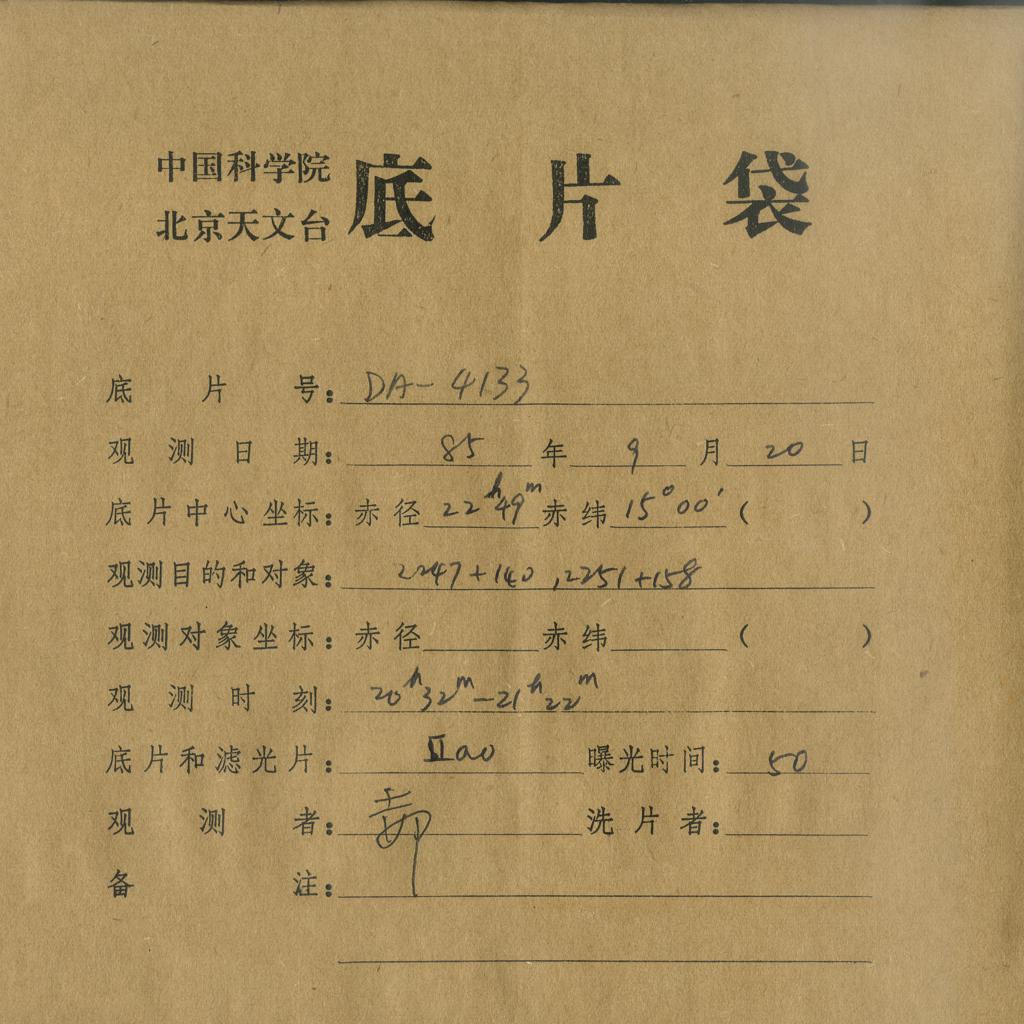 中国科学院
北京天文台
底片袋
底片号：DA-4133
观测日期：85年9月20日
底片中心坐标：赤径22h49m赤纬15°00′（ ）
观测目的和对象：2247+140，2251+158
观测对象坐标：赤径 赤纬 （ ）
观测时刻：20h32m-21h22m
底片和滤光片：IIao 曝光时间：50
观测者： 洗片者：
备注：